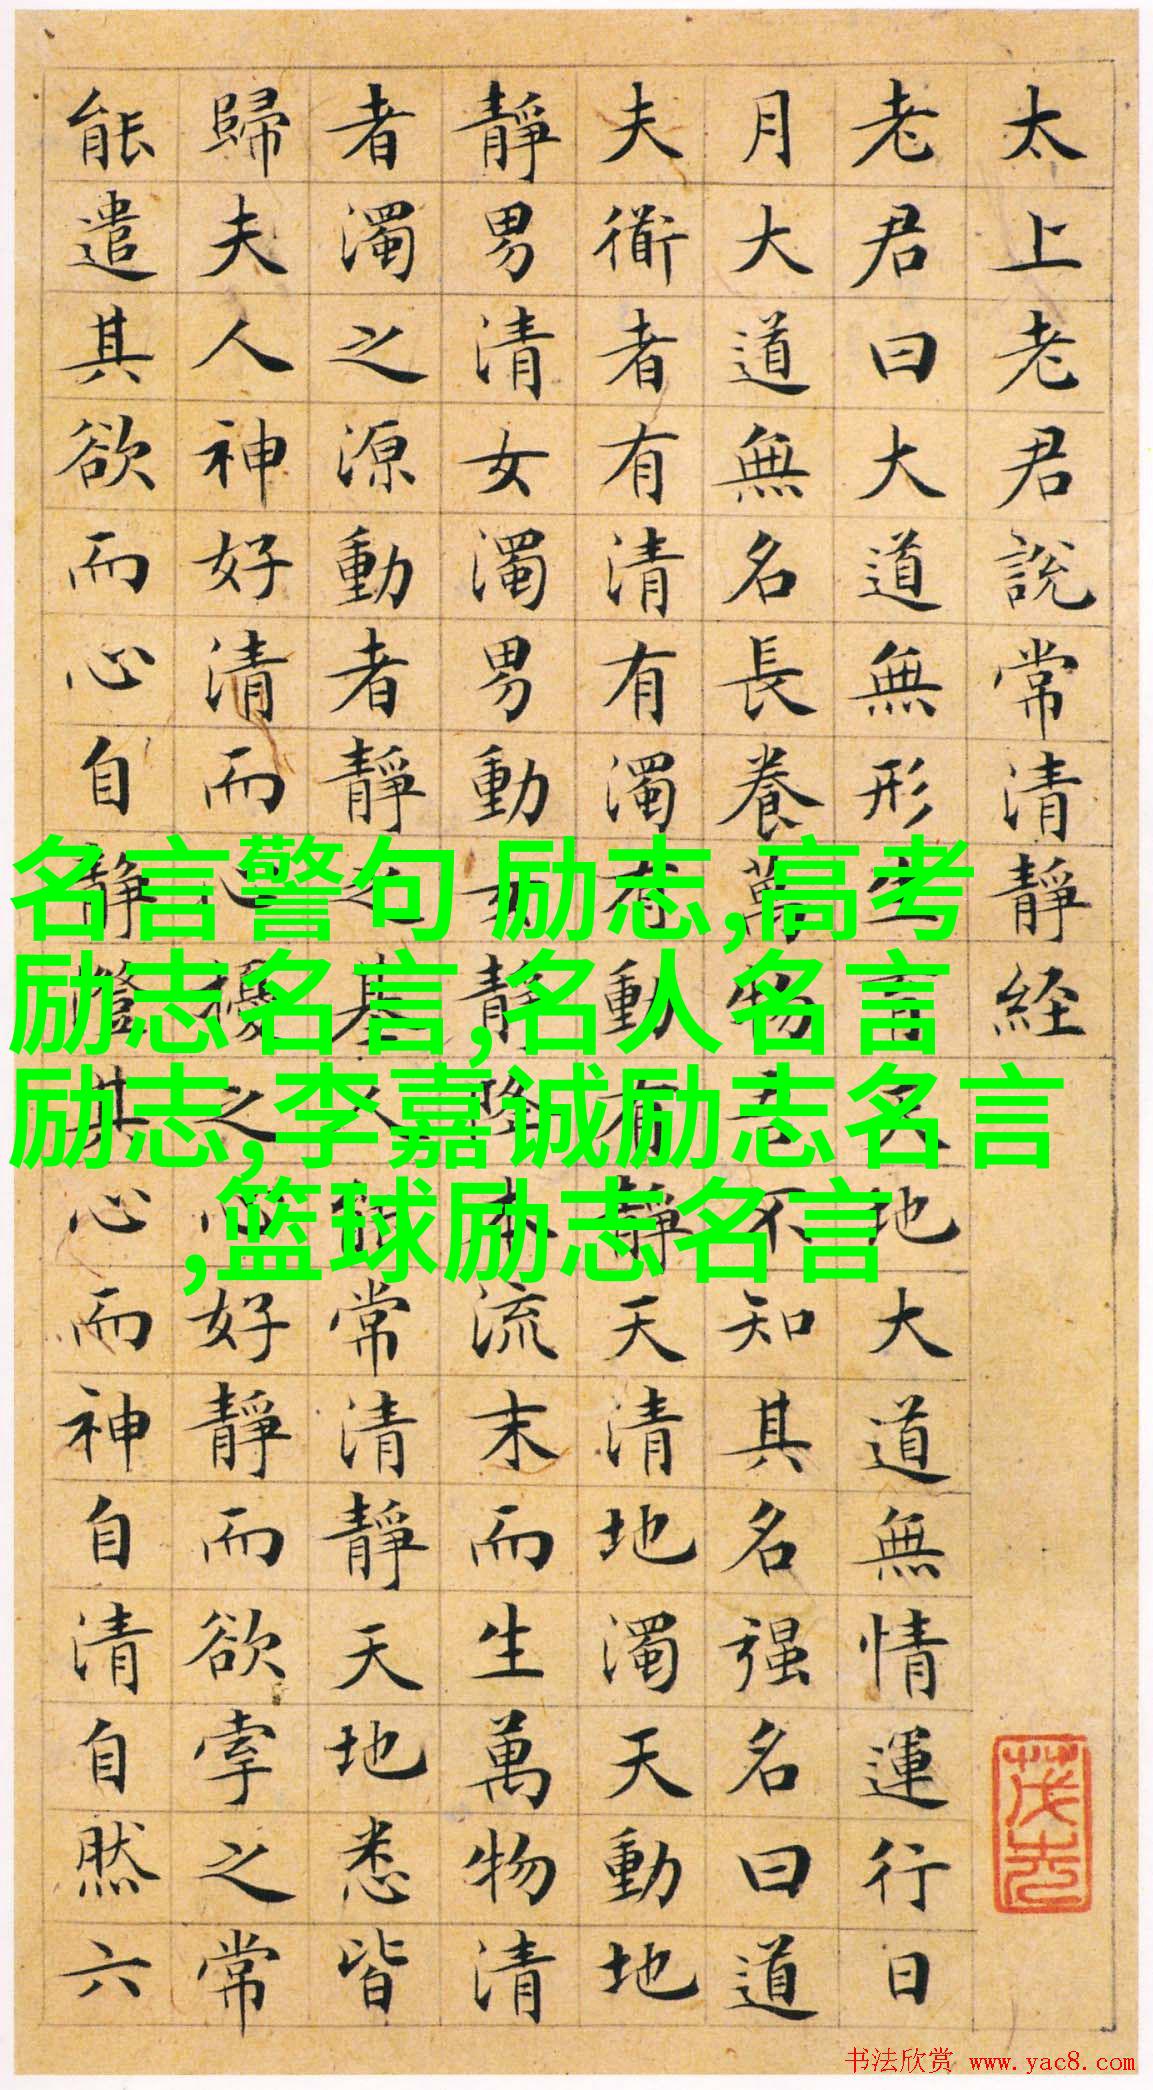 太上老君說常清靜経
老君曰大道無形生育天地大道無情運行日
月大道無名長養萬物吾不知其名强名曰道
夫衜者有清有濁有動有靜天清地濁天動地
靜男清女濁男動女靜降本流末而生萬物清
者濁之源動者靜之基人能常清靜天地悉皆
歸夫人神好清而心擾之心好靜而欲牽之常
能遣其欲而心自靜澄其心而神自清自然六
名言警句 励志,高考
励志名言,名人名言
励志,李嘉诚励志名言
,篮球励志名言
书法欣赏 www.yac8.com